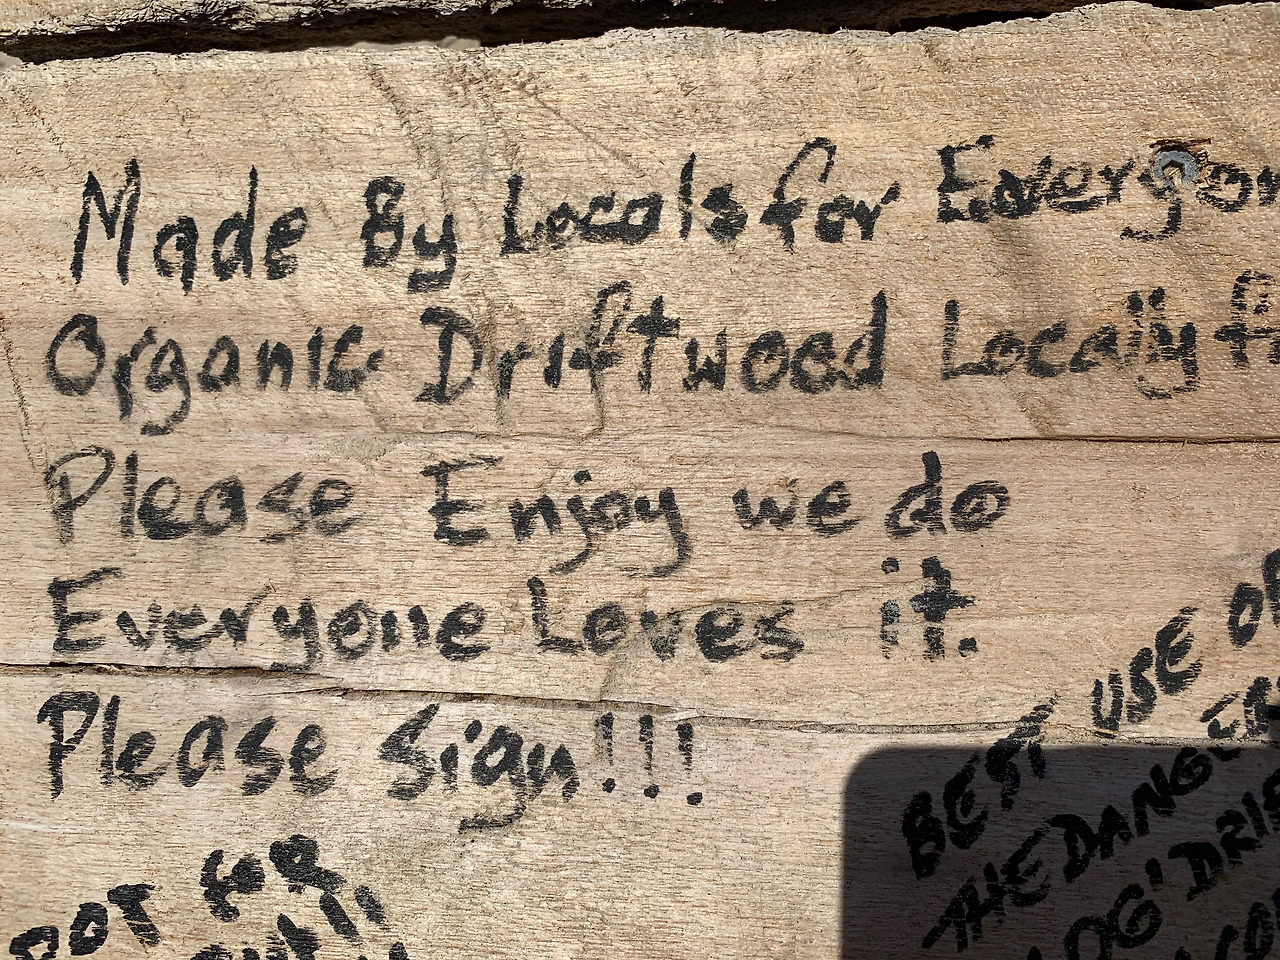 Made By Locals for Everyon
Organic Driftwood Locally f
Please Enjoy we do
Everyone Loves it.
Please Sign!!!
BEST USE OF
THE DANGER
LOG' DRI
OT FOR